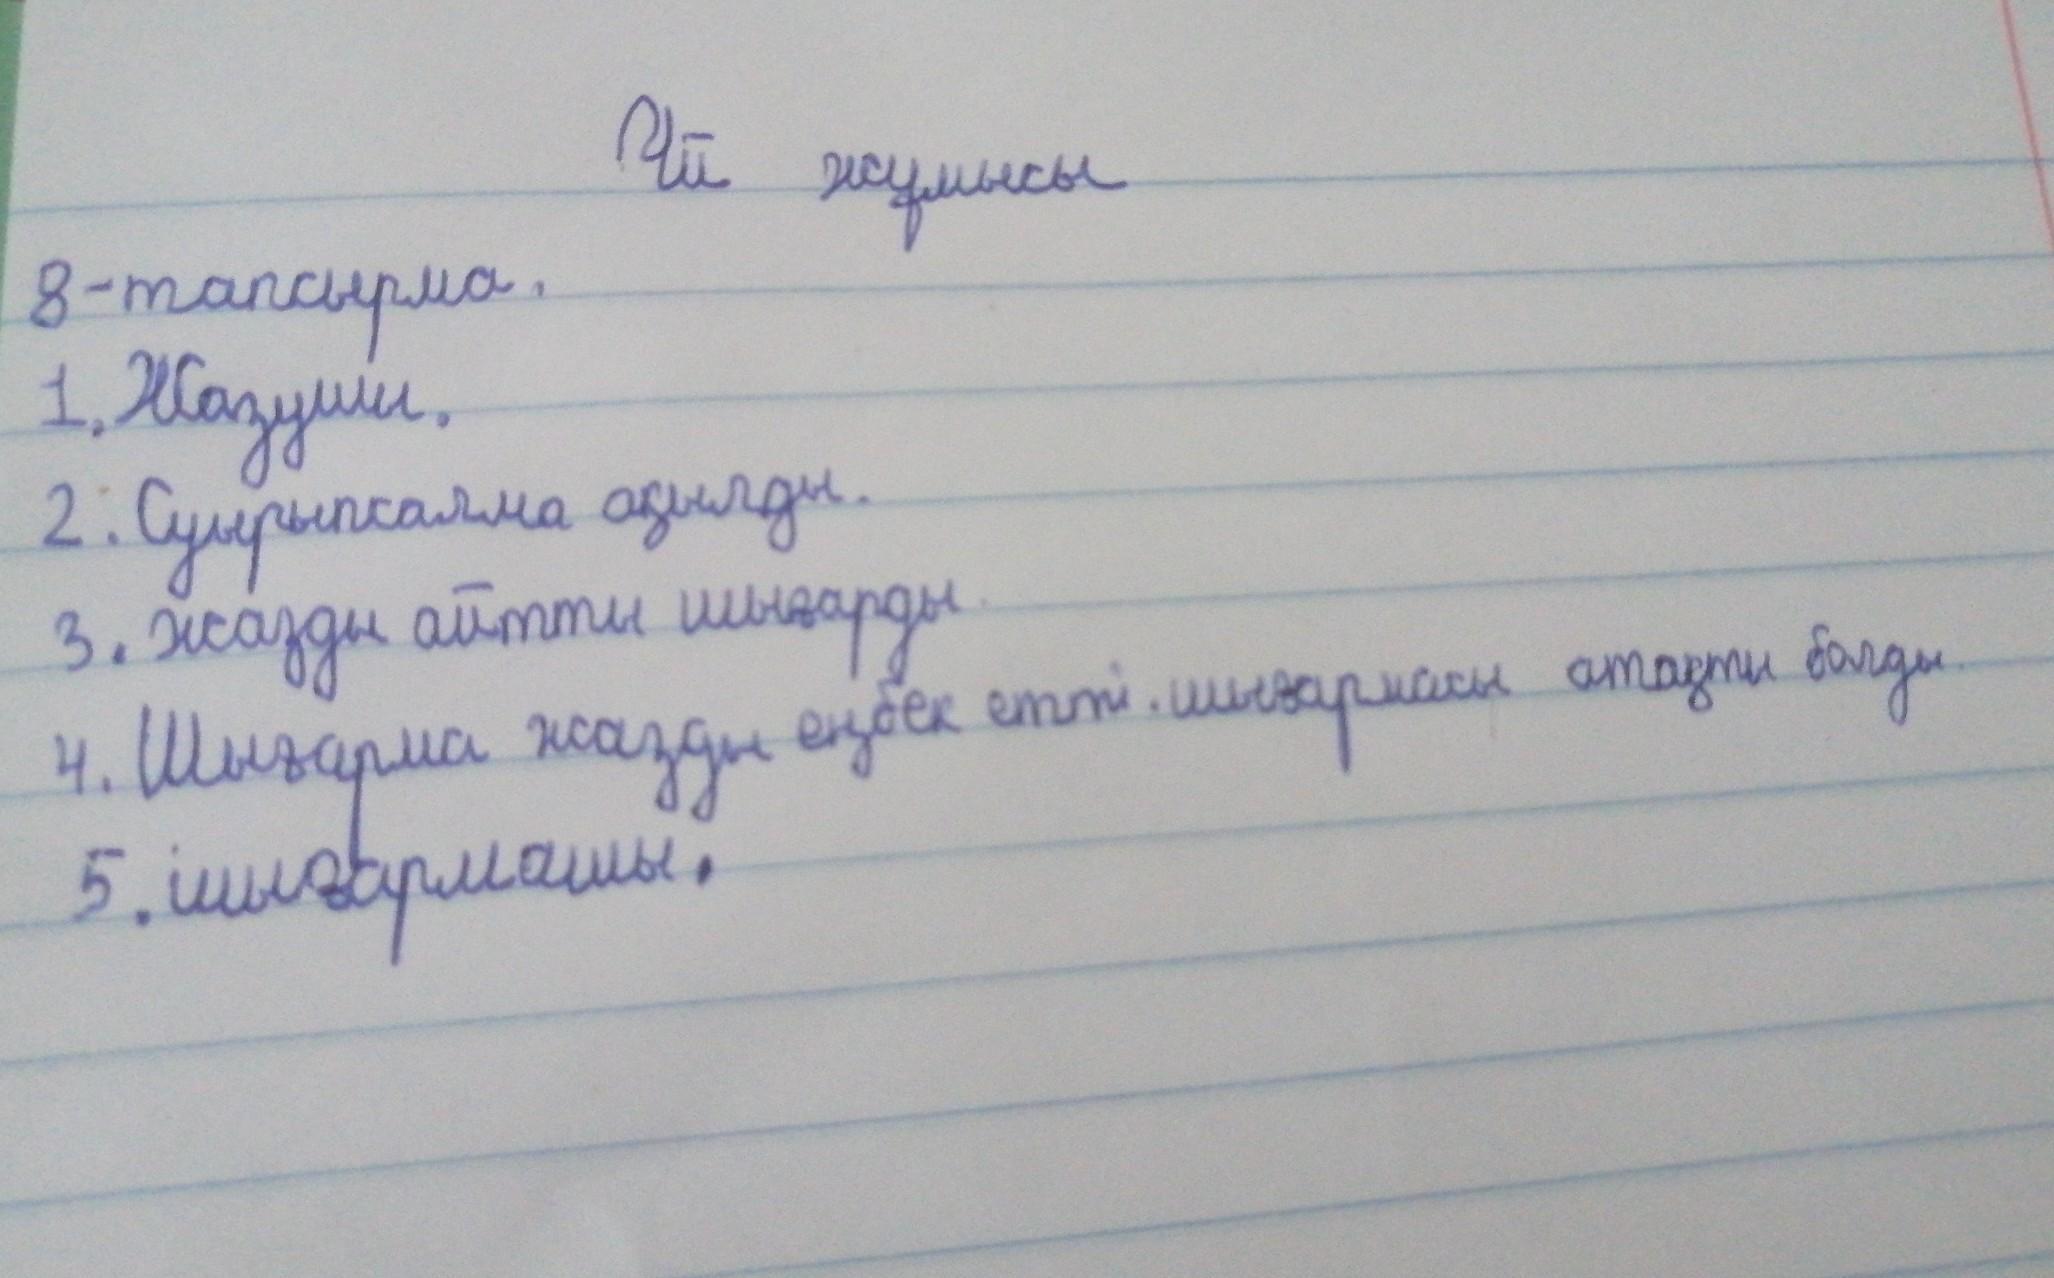 Үй жұмысы
8-тапсырма.
1. Жазушы.
2. Суырыпсалма ақылды.
3. жазды айтты шығарды.
4. Шығарма жазды еңбек етті. шығармасы атақты болды.
5. шығармашы.